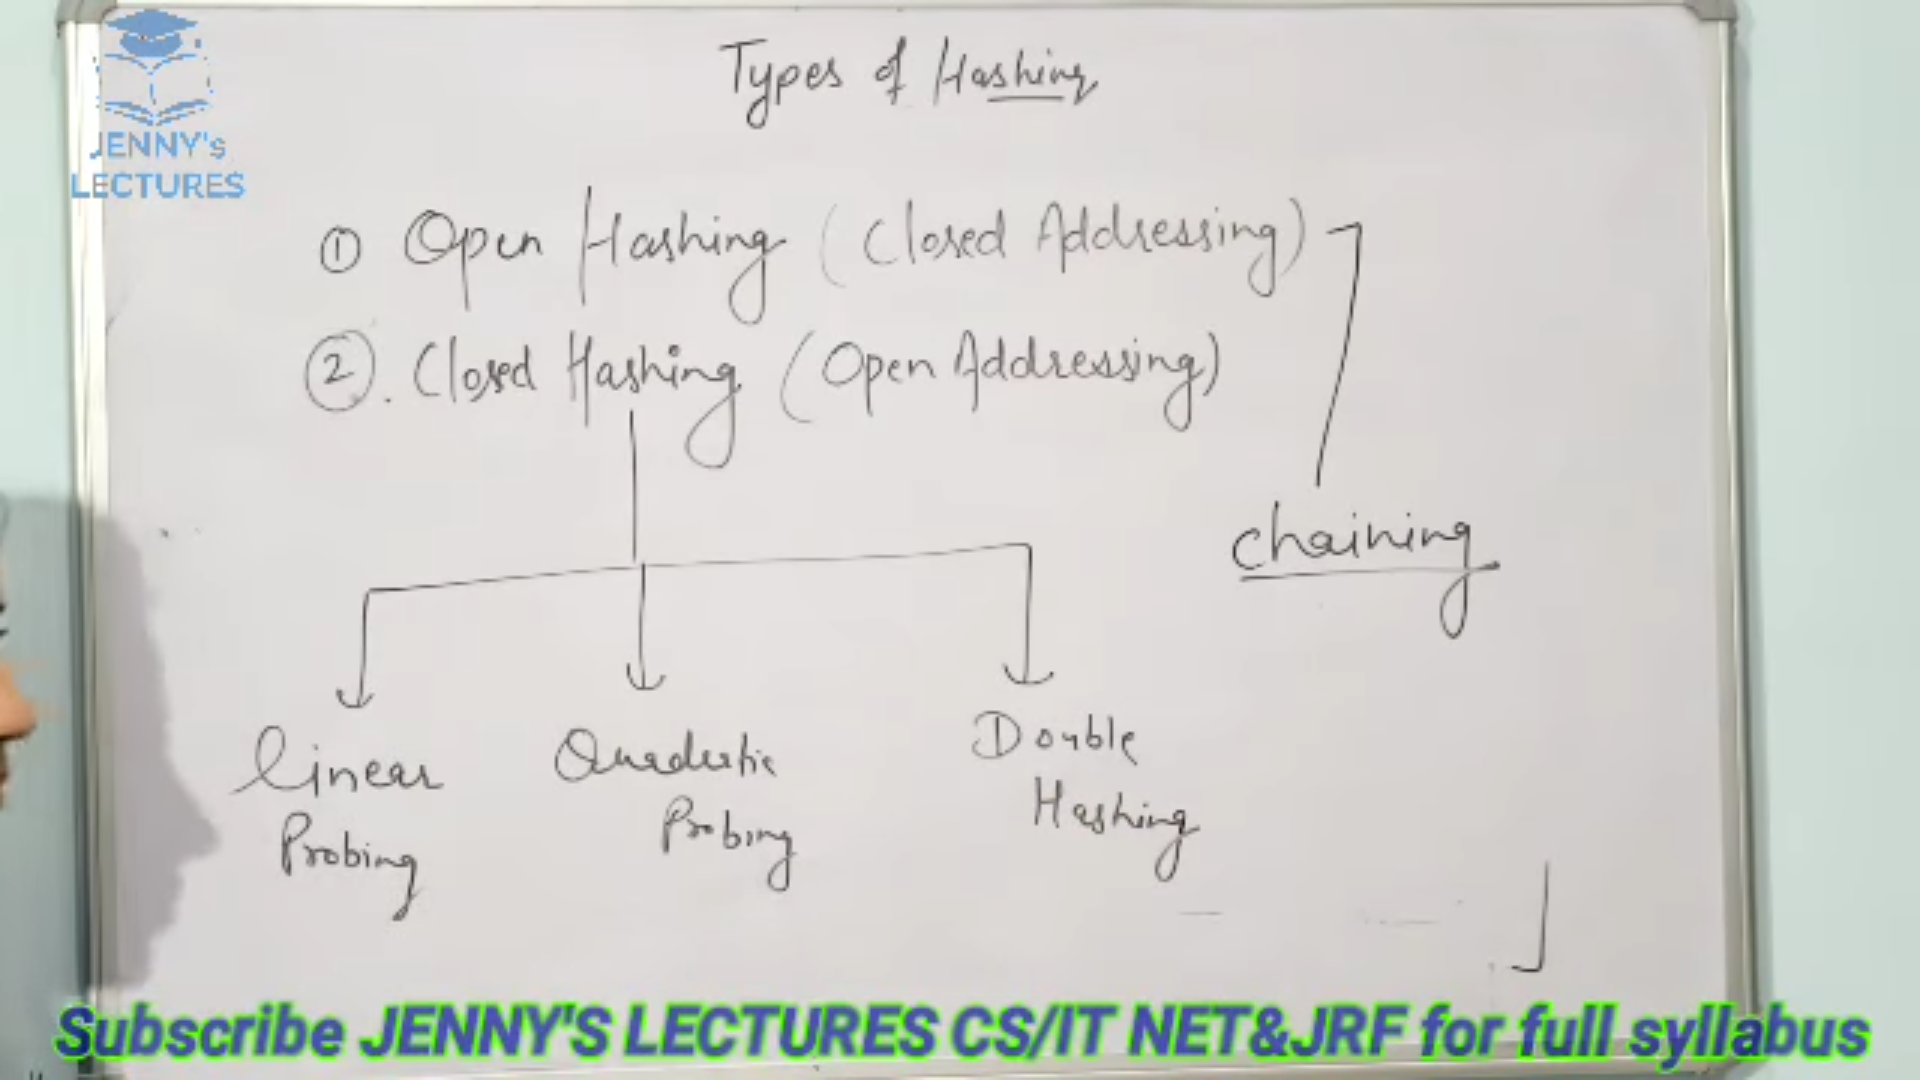 JENNY's
LECTURES
Types of Hashing
① Open Hashing (Closed Addressing)
②. Closed Hashing (Open Addressing)
chaining
Linear
Probing
Quadratic
Probing
Double
Hashing
Subscribe JENNY'S LECTURES CS/IT NET&JRF for full syllabus